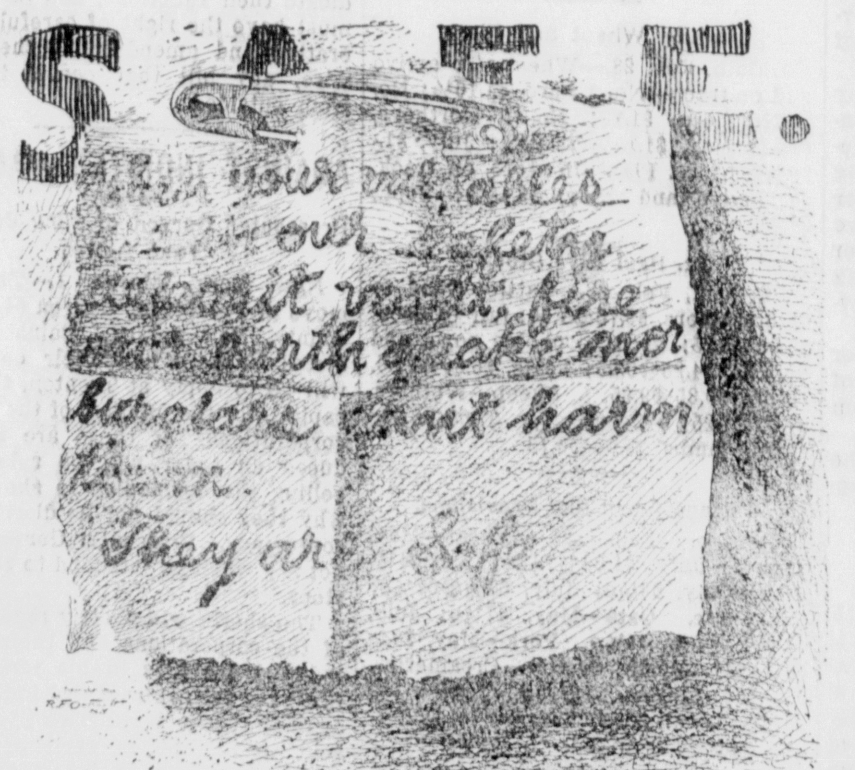 S A F E.
When your valuables
our safety
deposit vault, fire
nor earth quake nor
burglars can't harm
them.
They are Safe